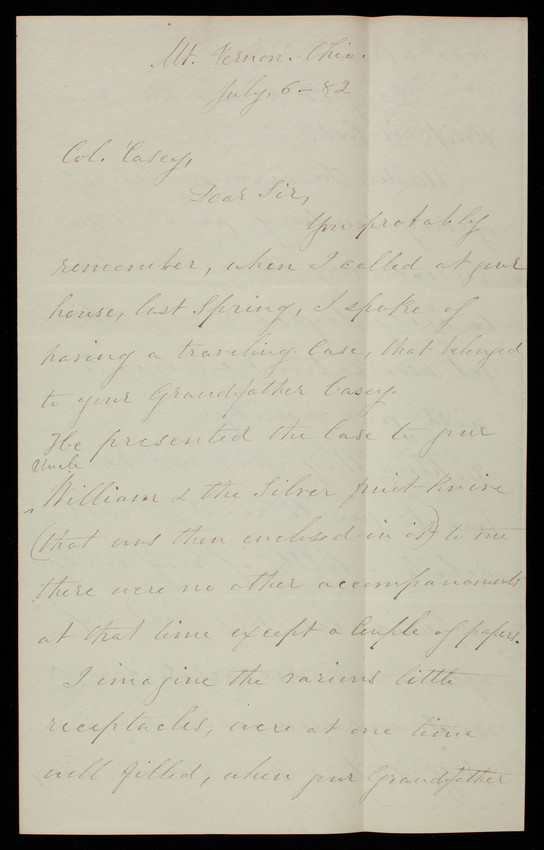 Mt. Vernon. Ohio.
July, 6 - 82
Col. Casey,
Dear Sir,
You probably
remember, when I called at your
house, last Spring, I spoke of
having a traveling Case, that belonged
to your Grandfather Casey.
He presented the Case to your
Uncle
^ William & the Silver fruit Knive
(that was then enclosed in it) to me
there were no other accompanaments
at that time except a Couple of papers.
I imagine the various little
receptacles, were at one time
well filled, when your Grandfather